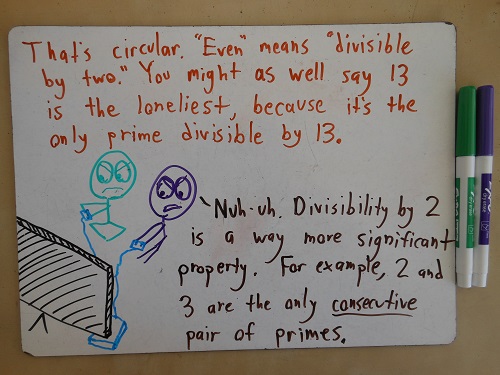 That's circular. "Even" means "divisible
by two." You might as well say 13
is the loneliest, because it's the
only prime divisible by 13.
Nuh-uh. Divisibility by 2
is a way more significant
property. For example, 2 and
3 are the only consecutive
pair of primes.